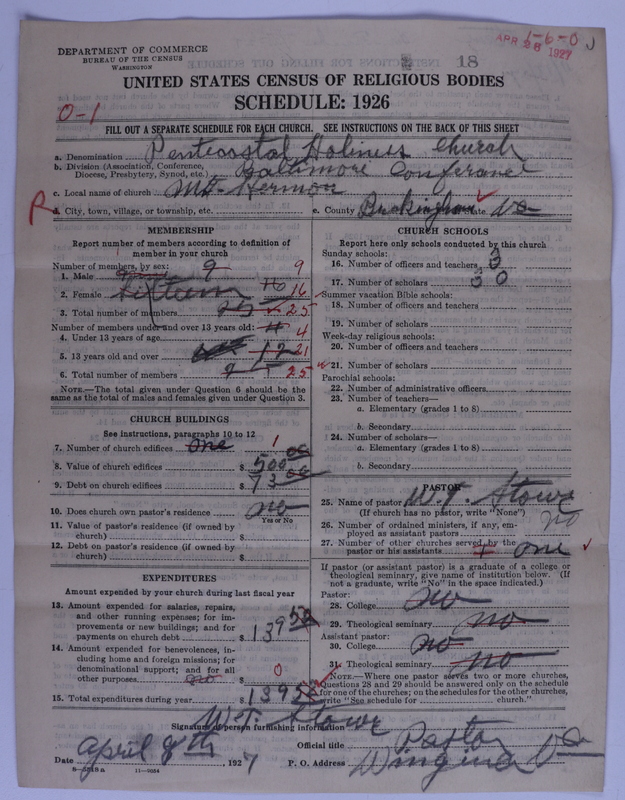 DEPARTMENT OF COMMERCE
BUREAU OF THE CENSUS
WASHINGTON
18
1-6-0
APR 28 1927
UNITED STATES CENSUS OF RELIGIOUS BODIES
SCHEDULE: 1926
0-1
FILL OUT A SEPARATE SCHEDULE FOR EACH CHURCH. SEE INSTRUCTIONS ON THE BACK OF THIS SHEET
a. Denomination Pentecostal Holiness Church
b. Division (Association, Conference, Diocese, Presbytery, Synod, etc.) Baltimore Conference
c. Local name of church Mt-Hermon
R d. City, town, village, or township, etc. e. County Buckingham State Va
MEMBERSHIP
Report number of members according to definition of member in your church
Number of members, by sex:
1. Male 9 9
2. Female Sixteen 16 16
3. Total number of members 25 25
Number of members under and over 13 years old:
4. Under 13 years of age 4 4
5. 13 years old and over 17 21
6. Total number of members 25
NOTE.—The total given under Question 6 should be the same as the total of males and females given under Question 3.
CHURCH BUILDINGS
See instructions, paragraphs 10 to 12
7. Number of church edifices one 1
8. Value of church edifices $ 500 00
9. Debt on church edifices $ 73 00
10. Does church own pastor's residence no
Yes or No
11. Value of pastor's residence (if owned by church) $
12. Debt on pastor's residence (if owned by church) $
EXPENDITURES
Amount expended by your church during last fiscal year
13. Amount expended for salaries, repairs, and other running expenses; for improvements or new buildings; and for payments on church debt $ 139 50
14. Amount expended for benevolences, including home and foreign missions; for denominational support; and for all other purposes no $ 0
15. Total expenditures during year $ 139
CHURCH SCHOOLS
Report here only schools conducted by this church
Sunday schools:
16. Number of officers and teachers 3
17. Number of scholars 30
Summer vacation Bible schools:
18. Number of officers and teachers
19. Number of scholars
Week-day religious schools:
20. Number of officers and teachers
21. Number of scholars
Parochial schools:
22. Number of administrative officers
23. Number of teachers—
a. Elementary (grades 1 to 8)
b. Secondary
24. Number of scholars—
a. Elementary (grades 1 to 8)
b. Secondary
PASTOR
25. Name of pastor W.T. Stowe
(If church has no pastor, write "None")
26. Number of ordained ministers, if any, employed as assistant pastors no
27. Number of other churches served by the pastor or his assistants one
If pastor (or assistant pastor) is a graduate of a college or theological seminary, give name of institution below. (If not a graduate, write "No" in the space indicated.)
Pastor:
28. College no
29. Theological seminary no
Assistant pastor:
30. College no
31. Theological seminary no
NOTE.—Where one pastor serves two or more churches, Questions 28 and 29 should be answered only on the schedule for one of the churches; on the schedules for the other churches, write "See schedule for church."
Signature of person furnishing information W.T. Stowe
Official title Pastor
Date April 8th 1927 P. O. Address Wingina Va
11—9034